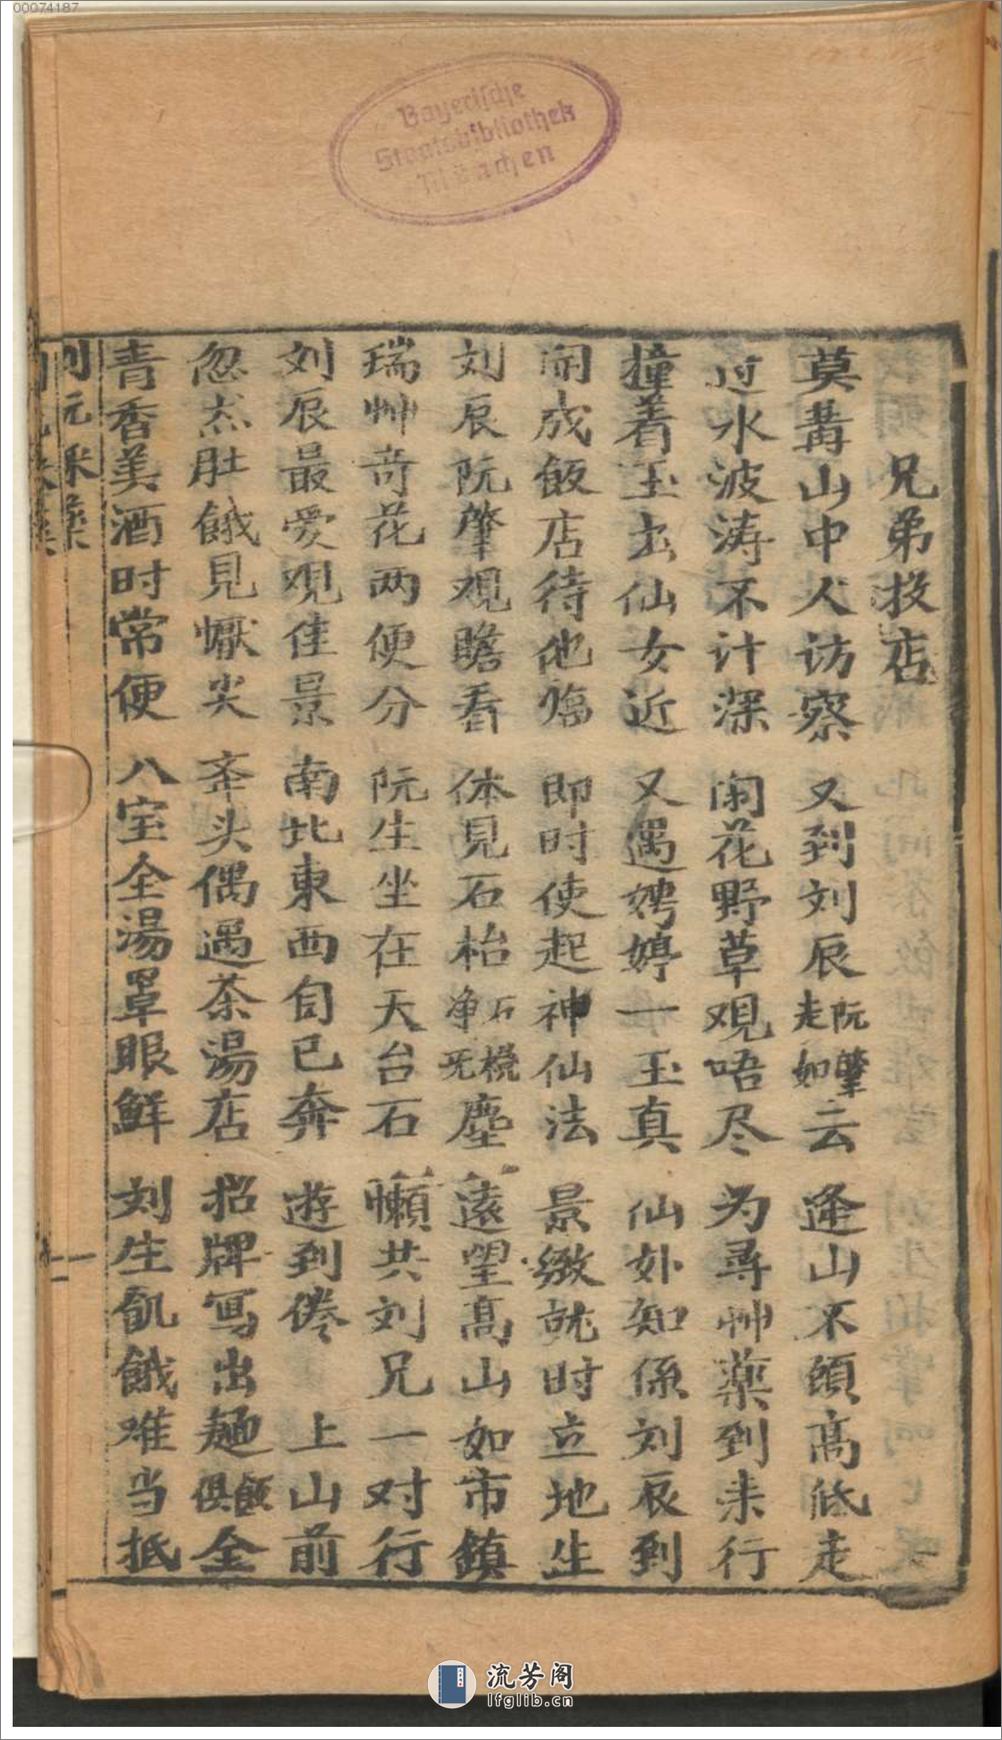 00074187
Bayerische
Staatsbibliothek
München
兄弟投店
莫講山中人访察 又到刘辰阮肇走如云 逢山不顾高低走
过水波涛不计深 闲花野草观唔尽 为寻艸薬到来行
撞着玉出仙女近 又遇娉婷一玉真 仙处知係刘辰到
開成飯店待他临 即时使起神仙法 景緻就时立地生
刘辰阮肇观瞻看 体見石枱石櫈净旡塵 遠望高山如市鎮
瑞艸奇花两便分 阮生坐在天台石 懶共刘兄一对行
刘辰最爱观佳景 南北東西自己奔 遊到倦 上山前
忽然肚餓見懨尖 奔头偶遇茶湯店 招牌写出麺飯俱全
青香美酒时常便 八宝全湯罩眼鮮 刘生飢餓难当抵
刘阮采薬
流芳阁
lfglib.cn